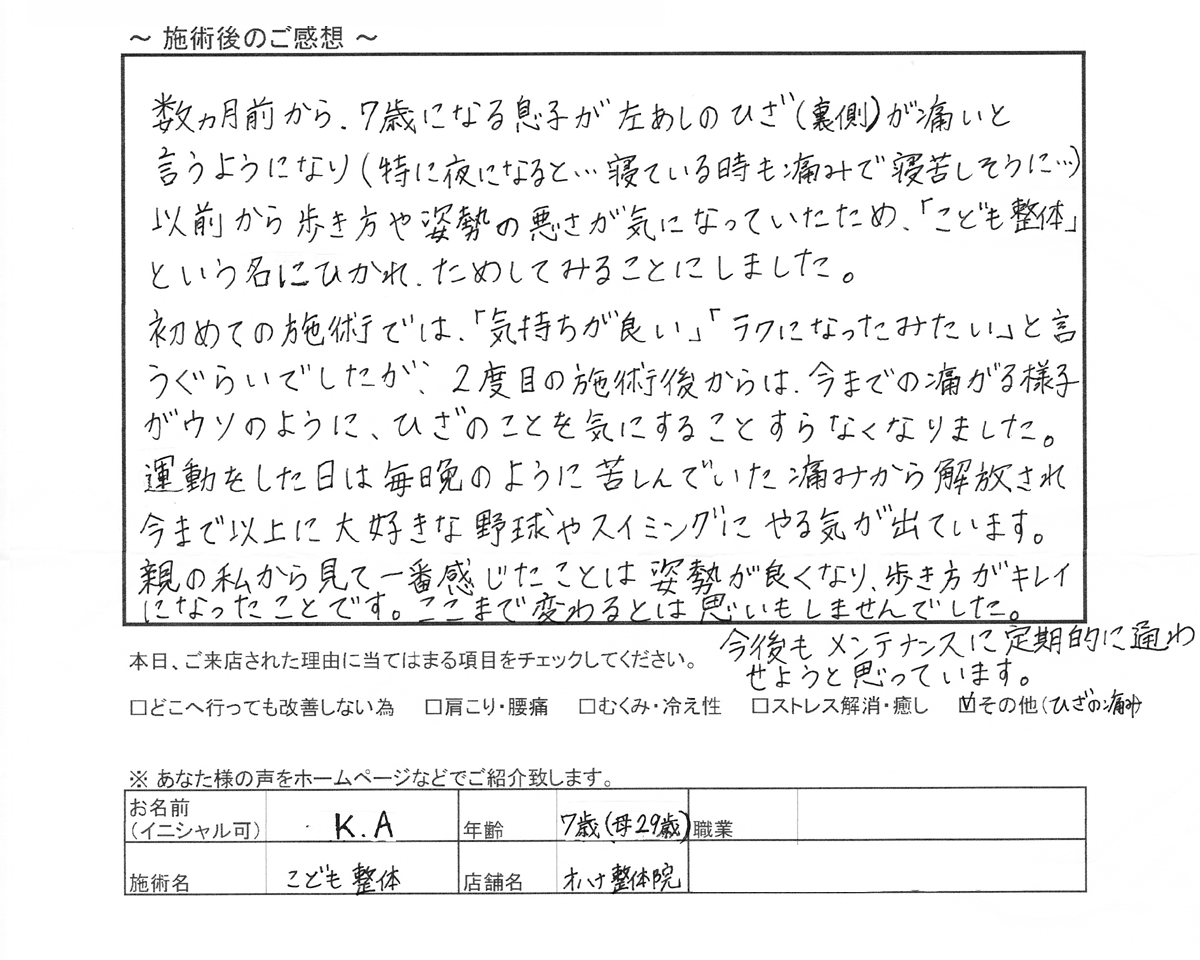 ～ 施術後のご感想 ～
数ヵ月前から、7歳になる息子が左あしのひざ(裏側)が痛いと
言うようになり(特に夜になると…寝ている時も痛みで寝苦しそうに…)
以前から歩き方や姿勢の悪さが気になっていたため、「こども整体」
という名にひかれ、ためしてみることにしました。
初めての施術では、「気持ちが良い」「ラクになったみたい」と言
うぐらいでしたが、2度目の施術後からは、今までの痛がる様子
がウソのように、ひざのことを気にすることすらなくなりました。
運動をした日は毎日晩のように苦しんでいた痛みから解放され
今まで以上に大好きな野球やスイミングにやる気が出ています。
親の私から見て一番感じたことは姿勢が良くなり、歩き方がキレイ
になったことです。ここまで変わるとは思いもしませんでした。
今後もメンテナンスに定期的に通わ
せようと思っています。
本日、ご来店された理由に当てはまる項目をチェックしてください。
□どこへ行っても改善しない為 □肩こり・腰痛 □むくみ・冷え性 □ストレス解消・癒し ☑その他(ひざの痛み)
※ あなた様の声をホームページなどでご紹介致します。
お名前
(イニシャル可) K.A 年齢 7歳(母29歳) 職業
施術名 こども整体 店舗名 オハナ整体院